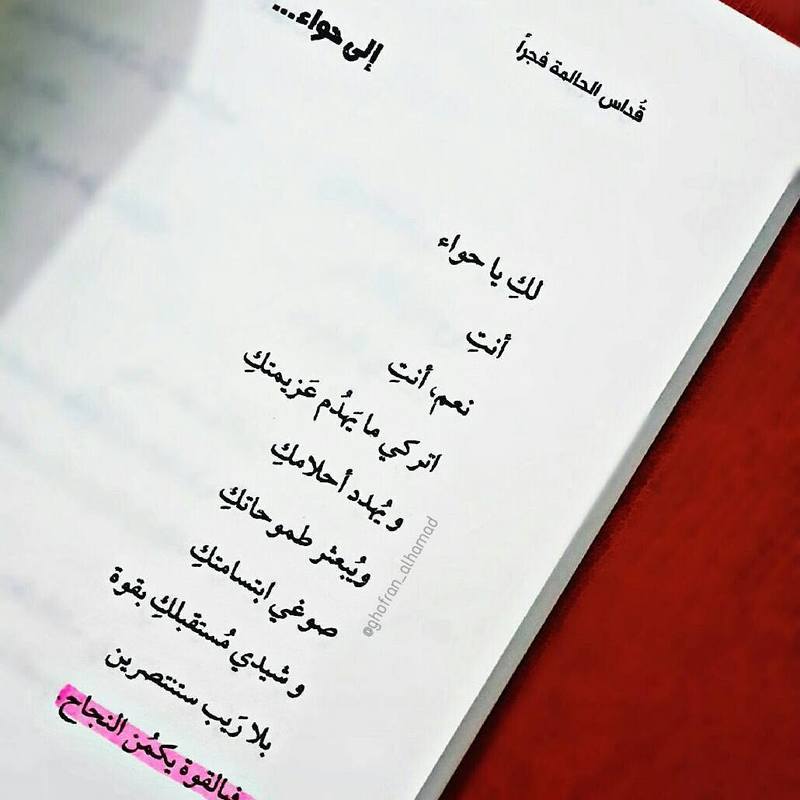 قُداس الحالمة فجراً
إلى حواء...
لكِ يا حواء
أنتِ
نعم، أنتِ
اتركي ما يَهدُم عَزيمتكِ
و يُهدد أحلامكِ
ويُبعثر طموحاتكِ
صوغي ابتسامتكِ
و شيدي مُستقبلكِ بقوة
بلا رَيب ستنتصرين
فبالقوة يكمُن النجاح.
@ghofran_alhamad